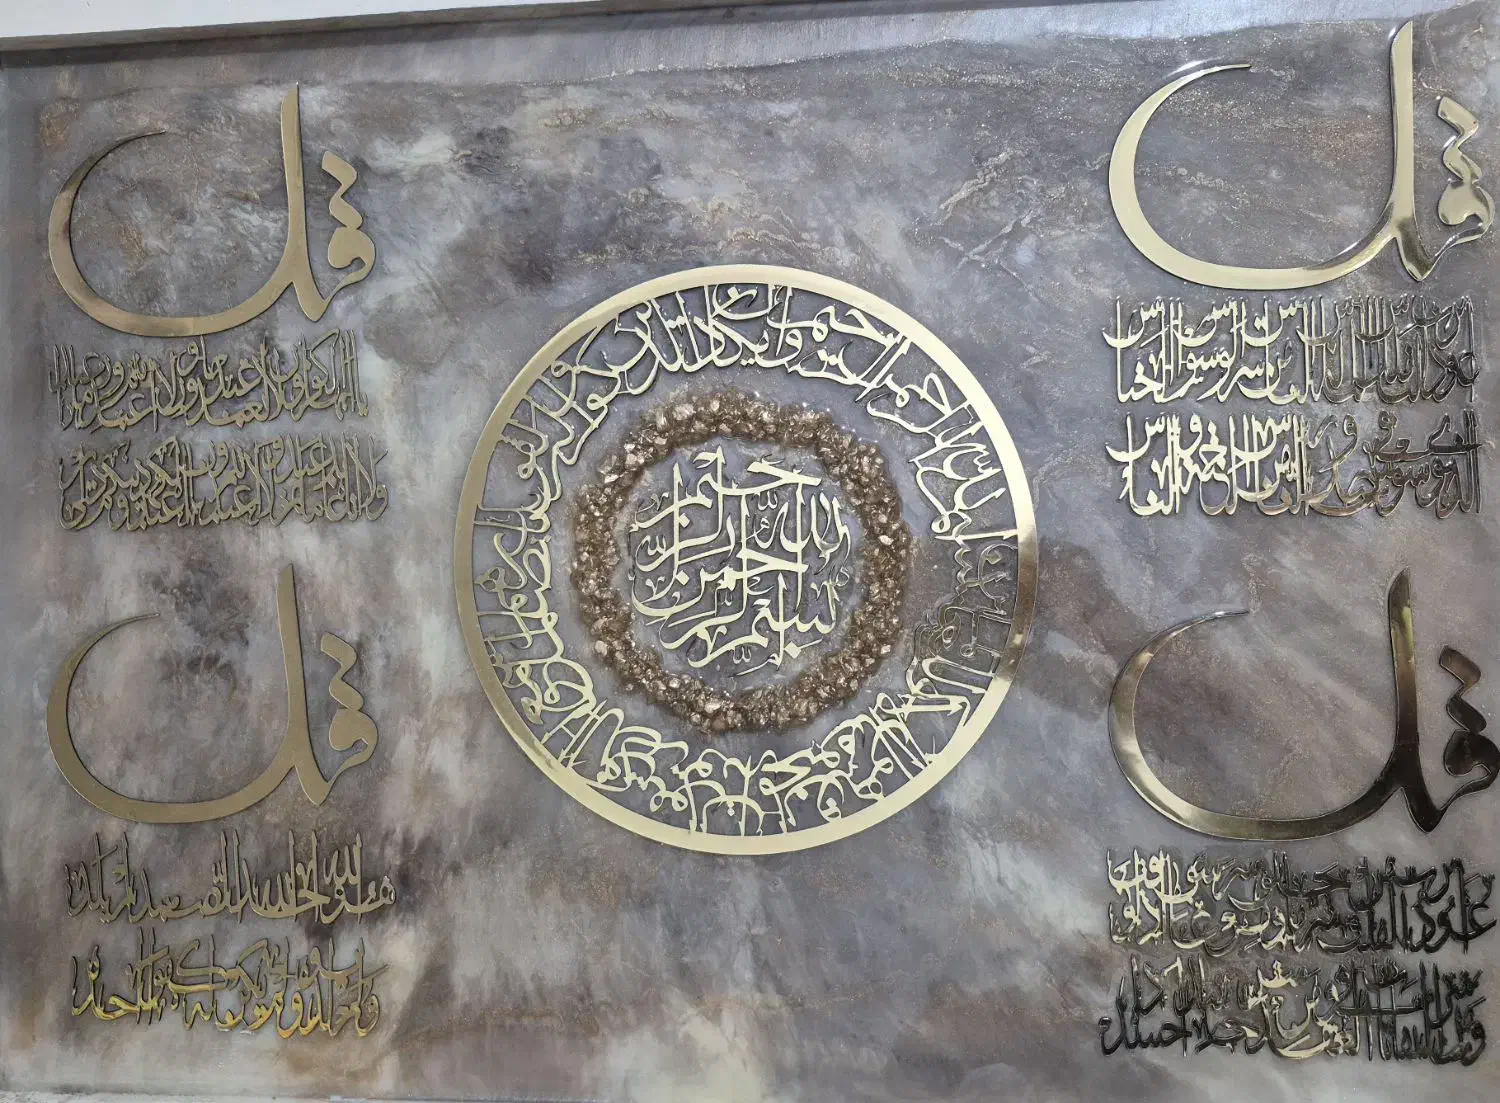 قل
أعوذ برب الناس ملك الناس إله الناس من شر الوسواس الخناس
الذي يوسوس في صدور الناس من الجنة والناس
قل
يا أيها الكافرون لا أعبد ما تعبدون ولا أنتم عابدون ما أعبد
ولا أنا عابد ما عبدتم ولا أنتم عابدون ما أعبد لكم دينكم ولي دين
بسم الله الرحمن الرحيم وإن يكاد الذين كفروا ليزلقونك بأبصارهم لما سمعوا الذكر ويقولون إنه لمجنون وما هو إلا ذكر للعالمين
بسم الله الرحمن الرحيم
قل
أعوذ برب الفلق من شر ما خلق ومن شر غاسق إذا وقب
ومن شر النفاثات في العقد ومن شر حاسد إذا حسد
قل
هو الله أحد الله الصمد لم يلد
ولم يولد ولم يكن له كفوا أحد